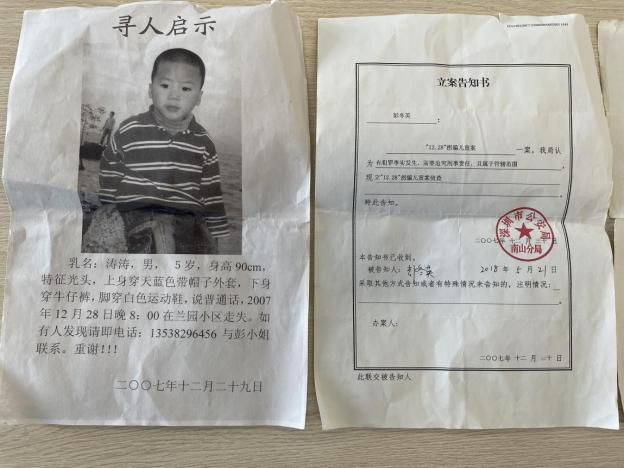 寻人启示
乳名：涛涛，男， 5岁，身高90cm，
特征光头，上身穿天蓝色带帽子外套，下身
穿牛仔裤，脚穿白色运动鞋，说普通话，2007
年12月28日晚8：00在兰园小区走失。如
有人发现请即电话：13538296456与彭小姐
联系。重谢!!!
二〇〇七年十二月二十九日
立案告知书
彭冬英 ：
"12.28"拐骗儿童案 一案，我局认
为 有犯罪事实发生，需要追究刑事责任，且属于管辖范围
现 立"12.28"拐骗儿童案侦查
特此告知。
深圳市公安局
南山分局
二〇〇七年十二月二十日
本告知书已收到。
被告知人： 2018年5月21日
采取其他方式告知或者有特殊情况未告知的，注明情况：
办案人：
二〇〇七年十二月 二十日
此联交被告知人